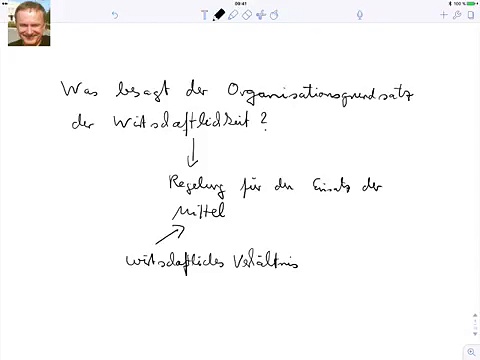 09:41
100%
Was besagt der Organisationsgrundsatz
der Wirtschaftlichkeit?
Regelung für den Einsatz der
Mittel
wirtschaftliches Verhältnis